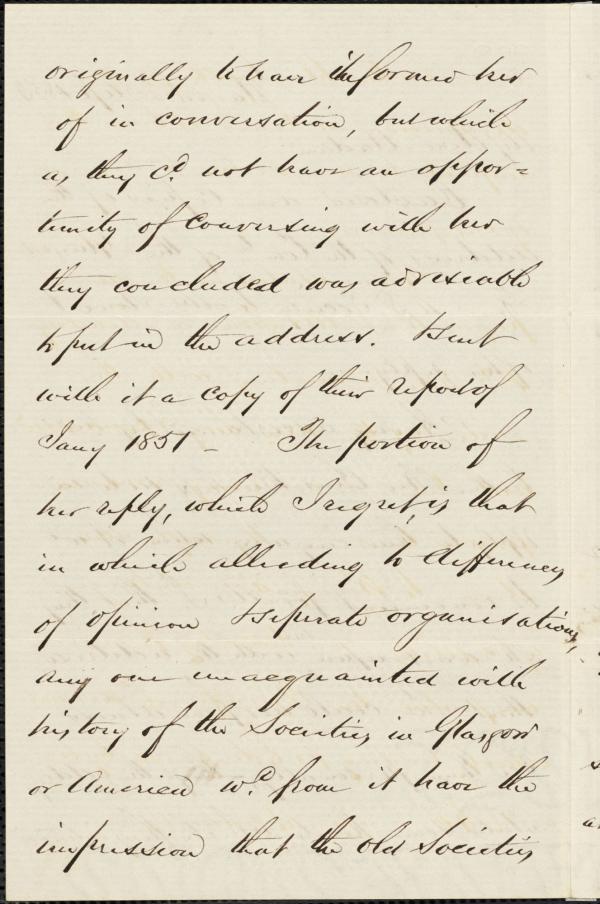 originally to have informed her
of in conversation, but which
as they cd not have an oppor=
tunity of conversing with her
they concluded was adviseable
to put in the address. & sent
with it a copy of their report of
Jany 1851 – The portion of
her reply, which I regret, is that
in which alluding to differences
of opinion & seperate organisations,
any one unacquainted with
history of the Societies in Glasgow
or America wd from it have the
impression that the old Societies